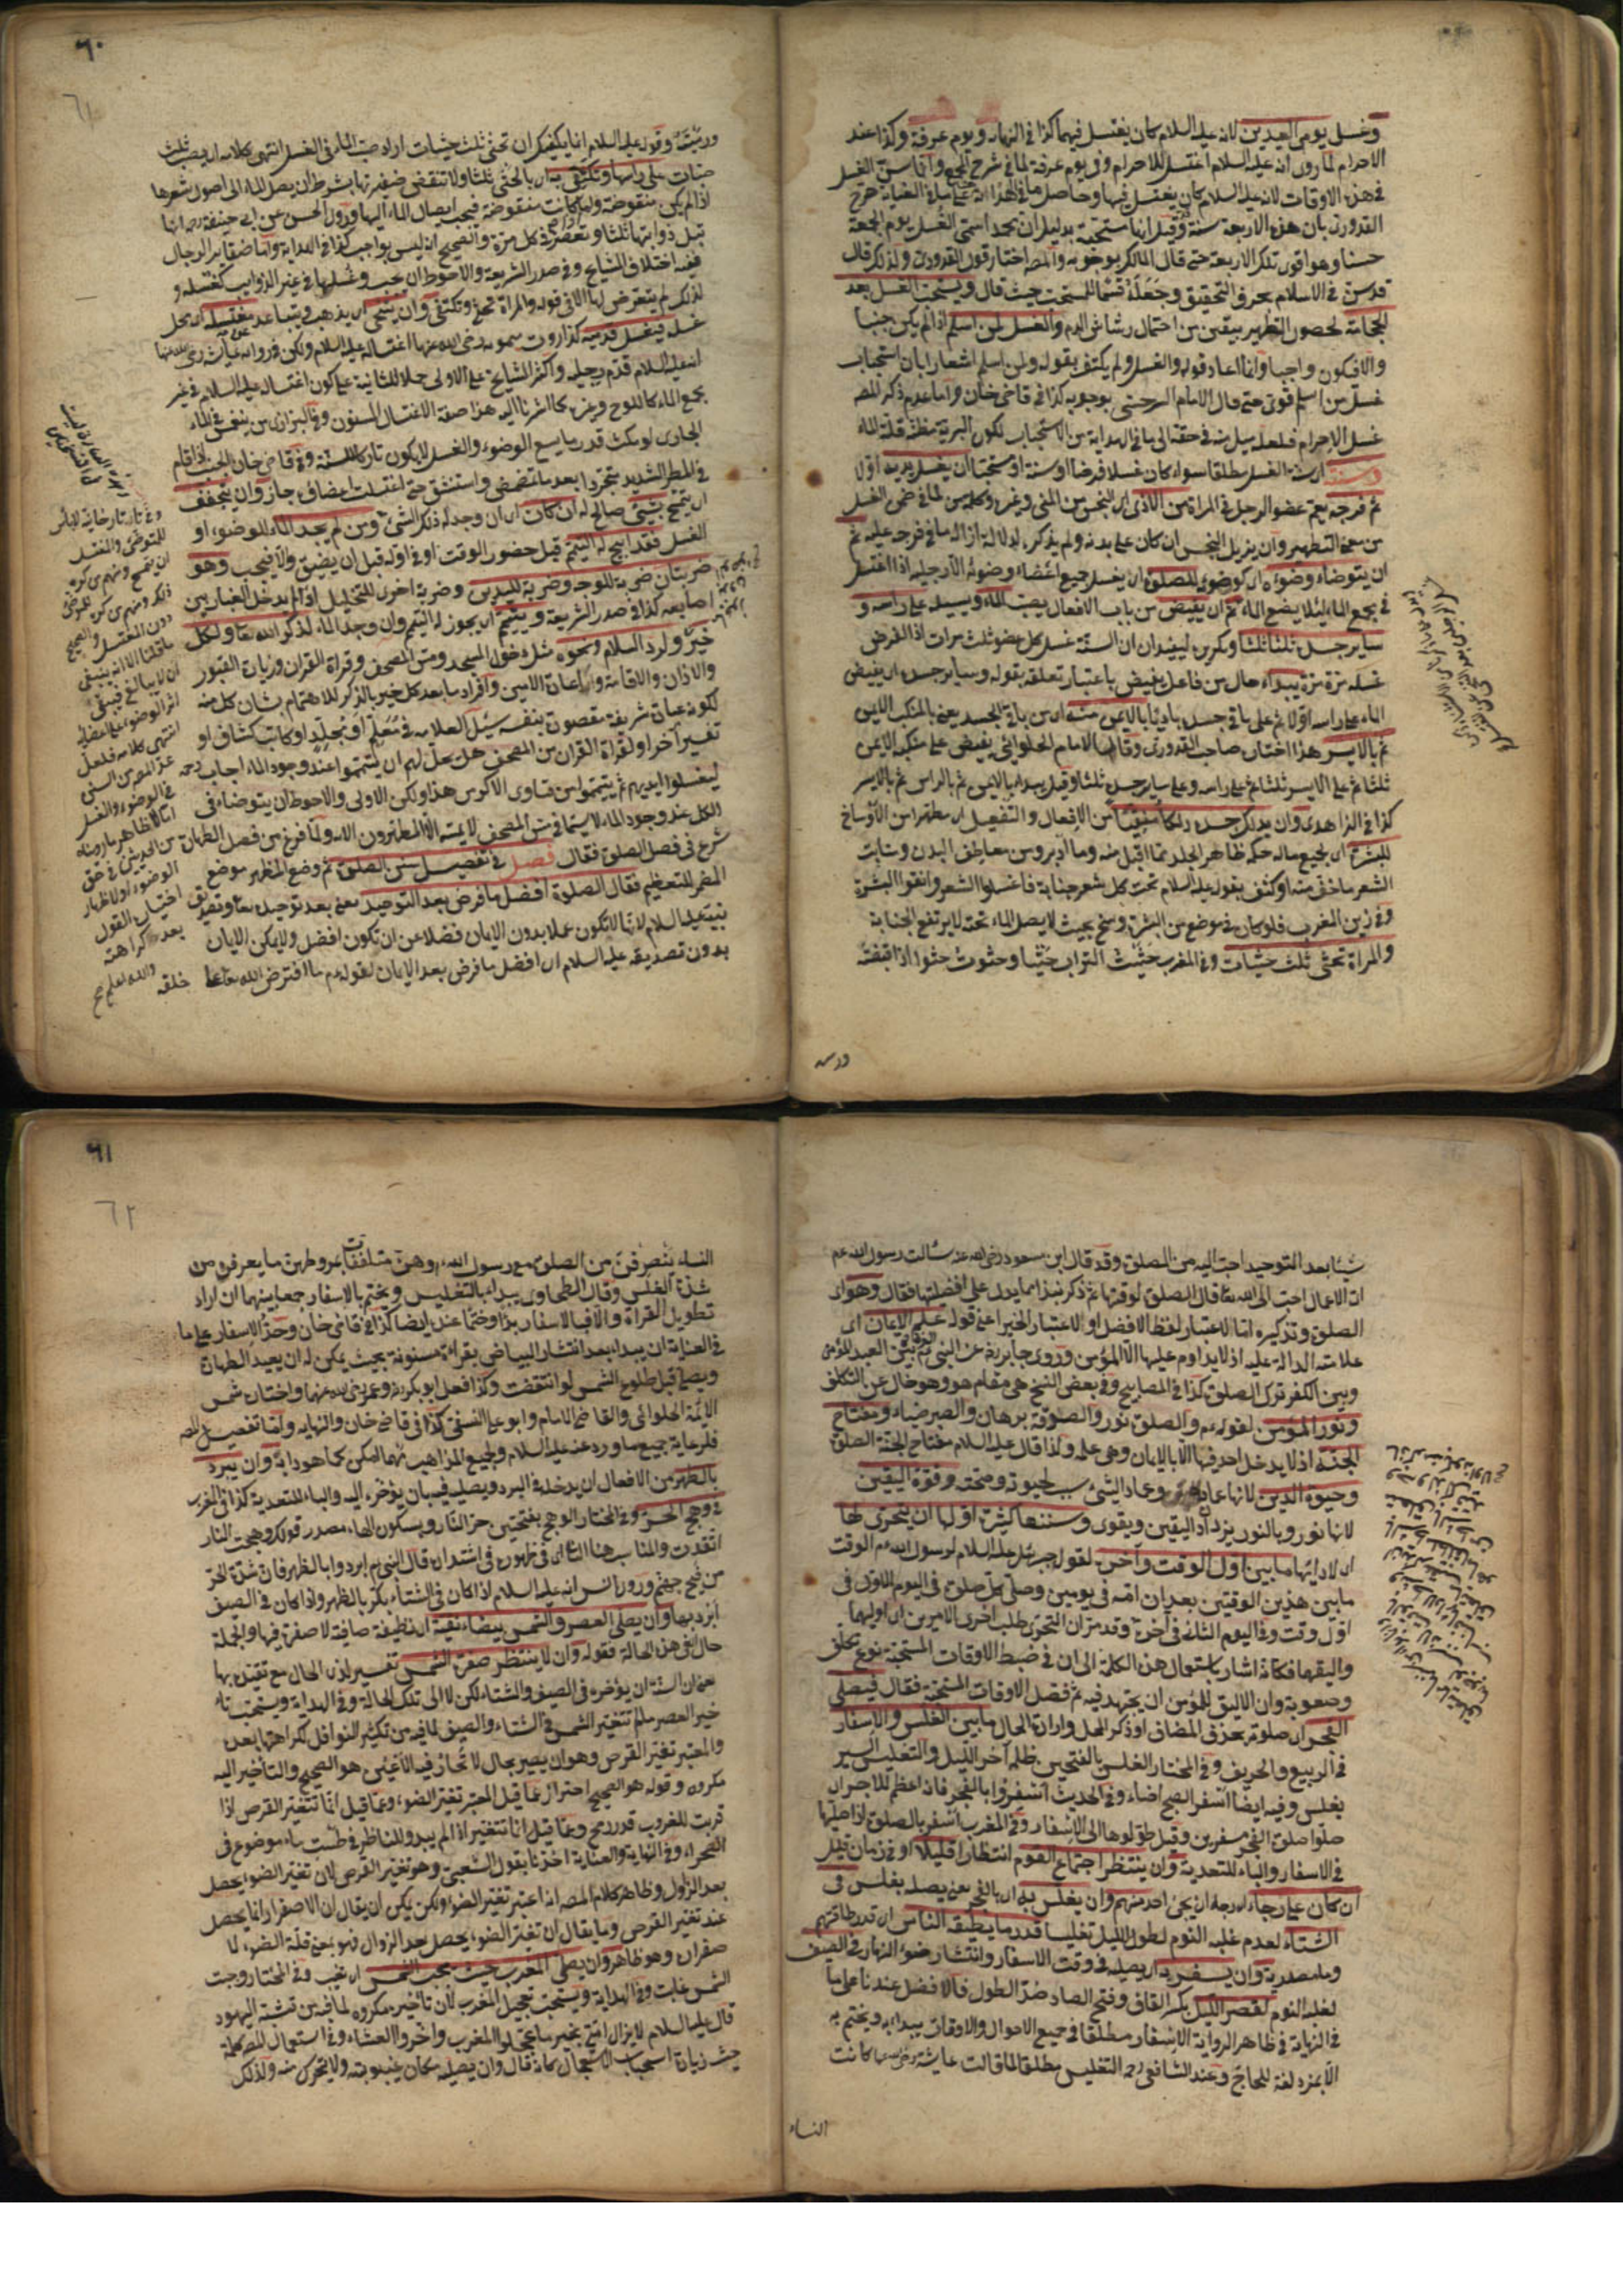 وغسل يومي العيدين لانه عليه السلام كان يغتسل فيهما كذا في النهاية ويوم عرفة وكذا عند
الاحرام لما روى انه عليه السلام اغتسل للاحرام وفي يوم عرفة لما في شرح المجمع وانما سن الغسل
في هذه الاوقات لانه عليه السلام كان يغتسل فيها وحاصل ما في
القدوري بان هذه الاربعة سنة وقيل انها مستحبة بدليل ان محمدا سمى الغسل يوم الجمعة
حسنا وهو اقوى تلك الاربعة حتى قال المالك بوجوبه والمص اختار قول القدوري ولذلك قال
قدس في الاسلام بحرف التحقيق وجعله قسما للمستحب حيث قال ويستحب الغسل بعد
الحجامة لحصول التطهير بيقين من احتمال رشاش الدم والغسل لمن اسلم اذا لم يكن جنبا
والا فيكون واجبا وانما اعاد قوله والغسل ولم يكتف بقوله ولمن اسلم اشعارا بان استحباب
غسل من اسلم قوي حتى قال الامام السرخسي بوجوبه كذا في قاضي خان واما عدم ذكر المص
غسل الاحرام فلعله ميل منه في حقه الى ما في الهداية من الاستحباب لكون البرية مظنة قلة الماء
وسنة اي سنة الغسل مطلقا سواء كان غسلا فرضا او سنة او مستحبا ان يغسل يديه اولا
ثم فرجه يعم عضو الرجل والمراة من الاذى اي النجس من المني وغيره وكلمة من لما في ضمن الغسل
من معنى التطهير وان يزيل النجس ان كان على بدنه ولم يذكره لدلالة ازالة ما في فرجه عليه ثم
ان يتوضاء وضوءه اي كوضوئه للصلوة اي يغسل جميع اعضاء وضوئه الا رجليه اذا اغتسل
في مجمع الماء لئلا يضع الماء ثم ان يفيض من باب الافعال يصب الماء ويسيله على راسه و
سائر جسده ثلثا ثلثا وكرره ليفيد ان السنة غسل كل عضو ثلث مرات اذ الفرض
غسله مرة مرة يبداء حال من فاعل يفيض باعتبار تعلقه بقوله وسائر جسده اي يفيض
الماء على راسه اولا ثم على باقي جسده بادئا بالايمن منه اي من باقي الجسد يعني بالمنكب الايمن
ثم بالايسر هذا اختاره صاحب القدوري وقال الامام الحلوائي يفيض على منكبه الايمن
ثلثا ثم على الايسر ثلثا ثم على راسه وعلى سائر جسده ثلثا وقيل يبداء بالايمن ثم بالراس ثم بالايسر
كذا في الزاهدي وان يدلك جسده دلكا منقيا من الافعال والتفعيل اي مطهرا من الاوساخ
للبشرة اي لجميع ماله حكم ظاهر الجلد مما اقبل منه وما ادبر ومن معاطف البدن ومنابت
الشعر ما خفي منه او كثف بقوله عليه السلام تحت كل شعرة جنابة فاغسلوا الشعر وانقوا البشرة
وفي زين المغرب فلو كان في موضع من البشرة وسخ بحيث لا يصل الماء تحته لا يرتفع الجنابة
والمراة تحثى ثلث حثيات وفي المغرب حثيت التراب حثيا وحثوت حثوا اذا قبضته
ورميته
٦٠
٦١
ورميته وقوله عليه السلام انما يكفيك ان تحثى ثلث حثيات اراد صب الماء في الغسل انتهى كلامه اي يصب ثلث
حثيات على راسها وتكتفي به اي بالحثي ثلثا ولا تنقض ضفيرتها بشرط ان يصل الماء الى اصول شعرها
اذا لم يكن منقوضة ولو كانت منقوضة فيجب ايصال الماء اليها وروى الحسن عن ابي حنيفة رح انها
تبل ذوائبها ثلثا وتعصر في كل مرة والصحيح انه ليس بواجب كذا في الهداية واما ضفائر الرجال
ففيه اختلاف المشايخ وفي صدر الشريعة والاحوط ان يجب وغسلها في غير الذوائب كغسله و
لذلك لم يتعرض لها الا في قوله والمراة تحثى وتكتفي وان يتنحى اي يذهب ويتباعد عن مغتسله اي محل
غسله فيغسل قدميه كذا روت ميمونة رضى الله عنها اغتساله عليه السلام ولكن في رواية عايشة رضى الله عنها
انه عليه السلام قدم رجليه واكثر المشايخ على الاولى حملا للثانية على كون اغتساله عليه السلام في غير
مجمع الماء كاللوح وغيره كما اشرنا اليه هذا صفة الاغتسال المسنون وفي البزازي من ينغمس في الماء
الجاري لو مكث قدر ما يسع الوضوء والغسل لا يكون تاركا للسنة وفي قاضي خان الجنب اذا قام
في المطر الشديد متجردا بعد ما تمضمض واستنشق حتى اغتسلت اعضاؤه جاز وان يتجفف
اي يتمسح بشيء صالح له ان كان اي ان وجد له ذكر الشيء ومن لم يجد الماء للوضوء او
الغسل فقد ابيح له التيمم قبل حضور الوقت او في اوله قبل ان يضيق والا فيجب وهو
ضربتان ضربة للوجه وضربة لليدين وضربة اخرى للتخليل اذا لم يدخل الغبار بين
اصابعه كذا في صدر الشريعة ويتيمم اي يجوز له التيمم وان وجد الماء لذكر الله تعالى ولكل
خير ولرد السلام ونحوه مثل دخول المسجد ومس المصحف وقراة القران وزيارة القبور
والاذان والاقامة واعانة الامين وافراد ما بعد كل خير بالذكر للاهتمام بشان كل منه
لكونه عبادة شريفة مقصودة بنفسه سئل العلامة في معلم او مجلد او كاتب كشاف او
تفسير اخر او لقراة القران من المصحف هل يحل لهم ان يتيمموا عند وجود الماء اجاب رحمه
ليغسلوا ايديهم ثم يتيمموا من فتاوى الاكرس هذا ولكن الاولى والاحوط ان يتوضاء في
الكل عند وجود الماء لا سيما في مس المصحف لا يمسه الا المطهرون الاية ولما فرغ من فصل الطهارة
شرع في فصل الصلوة فقال فصل في تفصيل سنن الصلوة ثم وضع المظهر موضع
المضمر للتعظيم فقال الصلوة افضل ما فرض بعد التوحيد يعني بعد توحيده تعالى وتصديق
نبيه عليه السلام لانها لا تكون عملا بدون الايمان فضلا عن ان تكون افضل ولا يمكن الايمان
بدون تصديقه عليه السلام اي افضل ما فرض بعد الايمان لقوله عم ما افترض الله تعالى على خلقه
وفي تاتارخانية لا باس
للمتوضئ والمغتسل
ان يتمسح ومنهم من كره
ذلك ومنهم من كره للمتوضئ
دون المغتسل والصحيح
ما قلنا الا انه ينبغي
ان لا يبالغ فيبقى
اثر الوضوء على اعضائه
انتهى كلامه فلعل
عد المص من السنن
في الوضوء والغسل
من الحديثين في حق
الوضوء او لاظهار
اختيار القول
بعدم كراهته
والله اعلم صح
شيئا بعد التوحيد احب اليه من الصلوة وقد قال ابن مسعود رضى الله عنه سألت رسول الله عم
اي الاعمال احب الى الله تعالى قال الصلوة لوقتها ثم ذكر نبذا مما يدل على افضليتها فقال وهو اي
الصلوة وتذكيره اما لاعتبار لفظ الافضل او لاعتبار الخبر اعني قوله علم الايمان اي
علامته الدالة عليه اذ لا يداوم عليها الا المؤمن وروى جابر رضه عن النبي عم بين العبد المؤمن
وبين الكفر ترك الصلوة كذا في المصابيح وفي بعض النسخ هي مقام هو وهو خال عن التكلف
ونور المؤمن لقوله عم والصلوة نور والصدقة برهان والصبر ضياء ومفتاح
الجنة اذ لا يدخل احد فيها الا بالايمان وهي علمه ولذا قال عليه السلام مفتاح الجنة الصلوة
وحيوة الدين لانها عماده وعماد الشيء سبب لحيوته وصحته وقوة اليقين
لانها نور وبالنور يزداد اليقين ويقوى وسننها كثيرة اولها ان يتحرى لها
اي لادائها ما بين اول الوقت واخره لقول جبرئيل عليه السلام لرسول الله عم الوقت
ما بين هذين الوقتين بعد ان امه في يومين وصلى كل صلوة في اليوم الاول في
اول وقت وفي اليوم الثاني في اخره وقد مر ان التحري طلب احرى الامرين اي اولهما
واليقهما فكانه اشار باستعمال هذه الكلمة الى ان في ضبط الاوقات المستحبة نوع تعلق
وصعوبة وان الاليق للمؤمن ان يجتهد فيه ثم فصل الاوقات المستحبة فقال فيصلي
الفجر اي صلوته بحذف المضاف او ذكر المحل وارادة الحال ما بين الغلس والاسفار
في الربيع والخريف وفي المختار الغلس بالفتحتين ظلمة اخر الليل والتغليس السير
بغلس وفيه ايضا اسفر الصبح اضاء وفي الحديث اسفروا بالفجر فانه اعظم للاجر اي
صلوا صلوة الفجر مسفرين وقيل طولوها الى الاسفار وفي المغرب اسفر بالصلوة اذا صلاها
في الاسفار والباء للتعدية وان ينتظر اجتماع القوم انتظارا قليلا او في زمان قليل
ان كان على رجاء اي رجاء ان يجئ احد منهم وان يغلس به اي بالفجر يعني يصليه بغلس في
الشتاء لعدم غلبة النوم لطول الليل تغليسا قدر ما يطيقه الناس اي قدر طاقتهم
وما مصدرية وان يسفر به اي يصليه في وقت الاسفار وانتشار ضوء النهار في الصيف
لغلبة النوم لقصر الليل بكسر القاف وفتح الصاد ضد الطول فالافضل عندنا على ما
في النهاية في ظاهر الرواية الاسفار مطلقا في جميع الاحوال والاوقات يبداء به ويختم به
الا بمزدلفة للحاج وعند الشافعي رحمه التغليس مطلقا لما قالت عايشة رضى الله عنها كانت
النساء
٦١
٦٢
النساء ينصرفن من الصلوة مع رسول الله وهن متلففات بمروطهن ما يعرفن من
شدة الغلس وقال الطحاوي يبداء بالتغليس ويختم بالاسفار جمعا بينهما ان اراد
تطويل القراة والا فبالاسفار بدأ وختما عنده ايضا كذا في قاضي خان وحد الاسفار على ما
في العناية ان يبداء بعد انتشار البياض بقراءة مسنونة بحيث يمكن له ان يعيد الطهارة
ويصلي قبل طلوع الشمس لو انتقضت وكذا فعل ابو بكر وعمر رضى الله عنهما واختاره شمس
الائمة الحلوائي والقاضي الامام وابو علي النسفي كذا في قاضي خان والنهاية واما تفصيل المص
فلرعاية جميع ما ورد عنه عليه السلام ولجميع المذاهب مهما امكن كما هو دابه وان يبرد
بالظهر من الافعال اي يدخله في البرد ويصليه فيه بان يؤخره اليه والباء للتعدية كذا في المغرب
في وهج الحر وفي المختار الوهج بفتحتين حر النار وبسكون الهاء مصدر قولك وهجت النار
اتقدت والمناسب هنا الثاني اي في ظهوره في اشتداده قال النبي عم ابردوا بالظهر فان شدة الحر
من فيح جهنم وروى انس انه عليه السلام اذا كان في الشتاء بكر بالظهر واذا كان في الصيف
ابرد بها وان يصلي العصر والشمس بيضاء نقية اي نظيفة صافية لا صفرة فيها والجملة
حال في هذه الحالة فقوله وان لا ينتظر صفرة الشمس تفسير لذي الحال مع تقيده بها
يعني ان السنة ان يؤخره في الصيف والشتاء لكن لا الى تلك الحالة وفي الهداية ويستحب تا
خير العصر ما لم تتغير الشمس في الشتاء والصيف لما فيه من تكثير النوافل لكراهتها بعده
والمعتبر تغير القرص وهو ان يصير بحال لا تحار فيه الاعين هو الصحيح والتاخير اليه
مكروه وقوله هو الصحيح احتراز عما قيل المعتبر تغير الضوء وعما قيل انما تتغير القرص اذا
قربت للغروب قدر رمح وعما قيل انما تتغير اذا لم يبدو للناظر في طشت ماء موضوع في
الصحراء وفي النهاية والعناية اخذنا بقول الشعبي وهو تغير القرص لان تغير الضوء يحصل
بعد الزوال وظاهر كلام المص انه اعتبر تغير الضوء ولكن يمكن ان يقال ان الاصفرار انما يحصل
عند تغير القرص وما يقال ان تغير الضوء يحصل بعد الزوال فهو بمعنى قلة الضوء لا
صفراره وهو ظاهر وان يصلي المغرب حيث يجب الشمس اي تغيب وفي المختار وجبت
الشمس غابت وفي الهداية ويستحب تعجيل المغرب لان تاخيره مكروه لما فيه من تشبه اليهود
قال عليه السلام لا يزال امتي بخير ما عجلوا المغرب واخروا العشاء وفي استعمال المص كلمة
حيث زيادة استحباب الاستعجال كانه قال وان يصليه مكان غيبوبته ولا يتحرك منه ولذلك